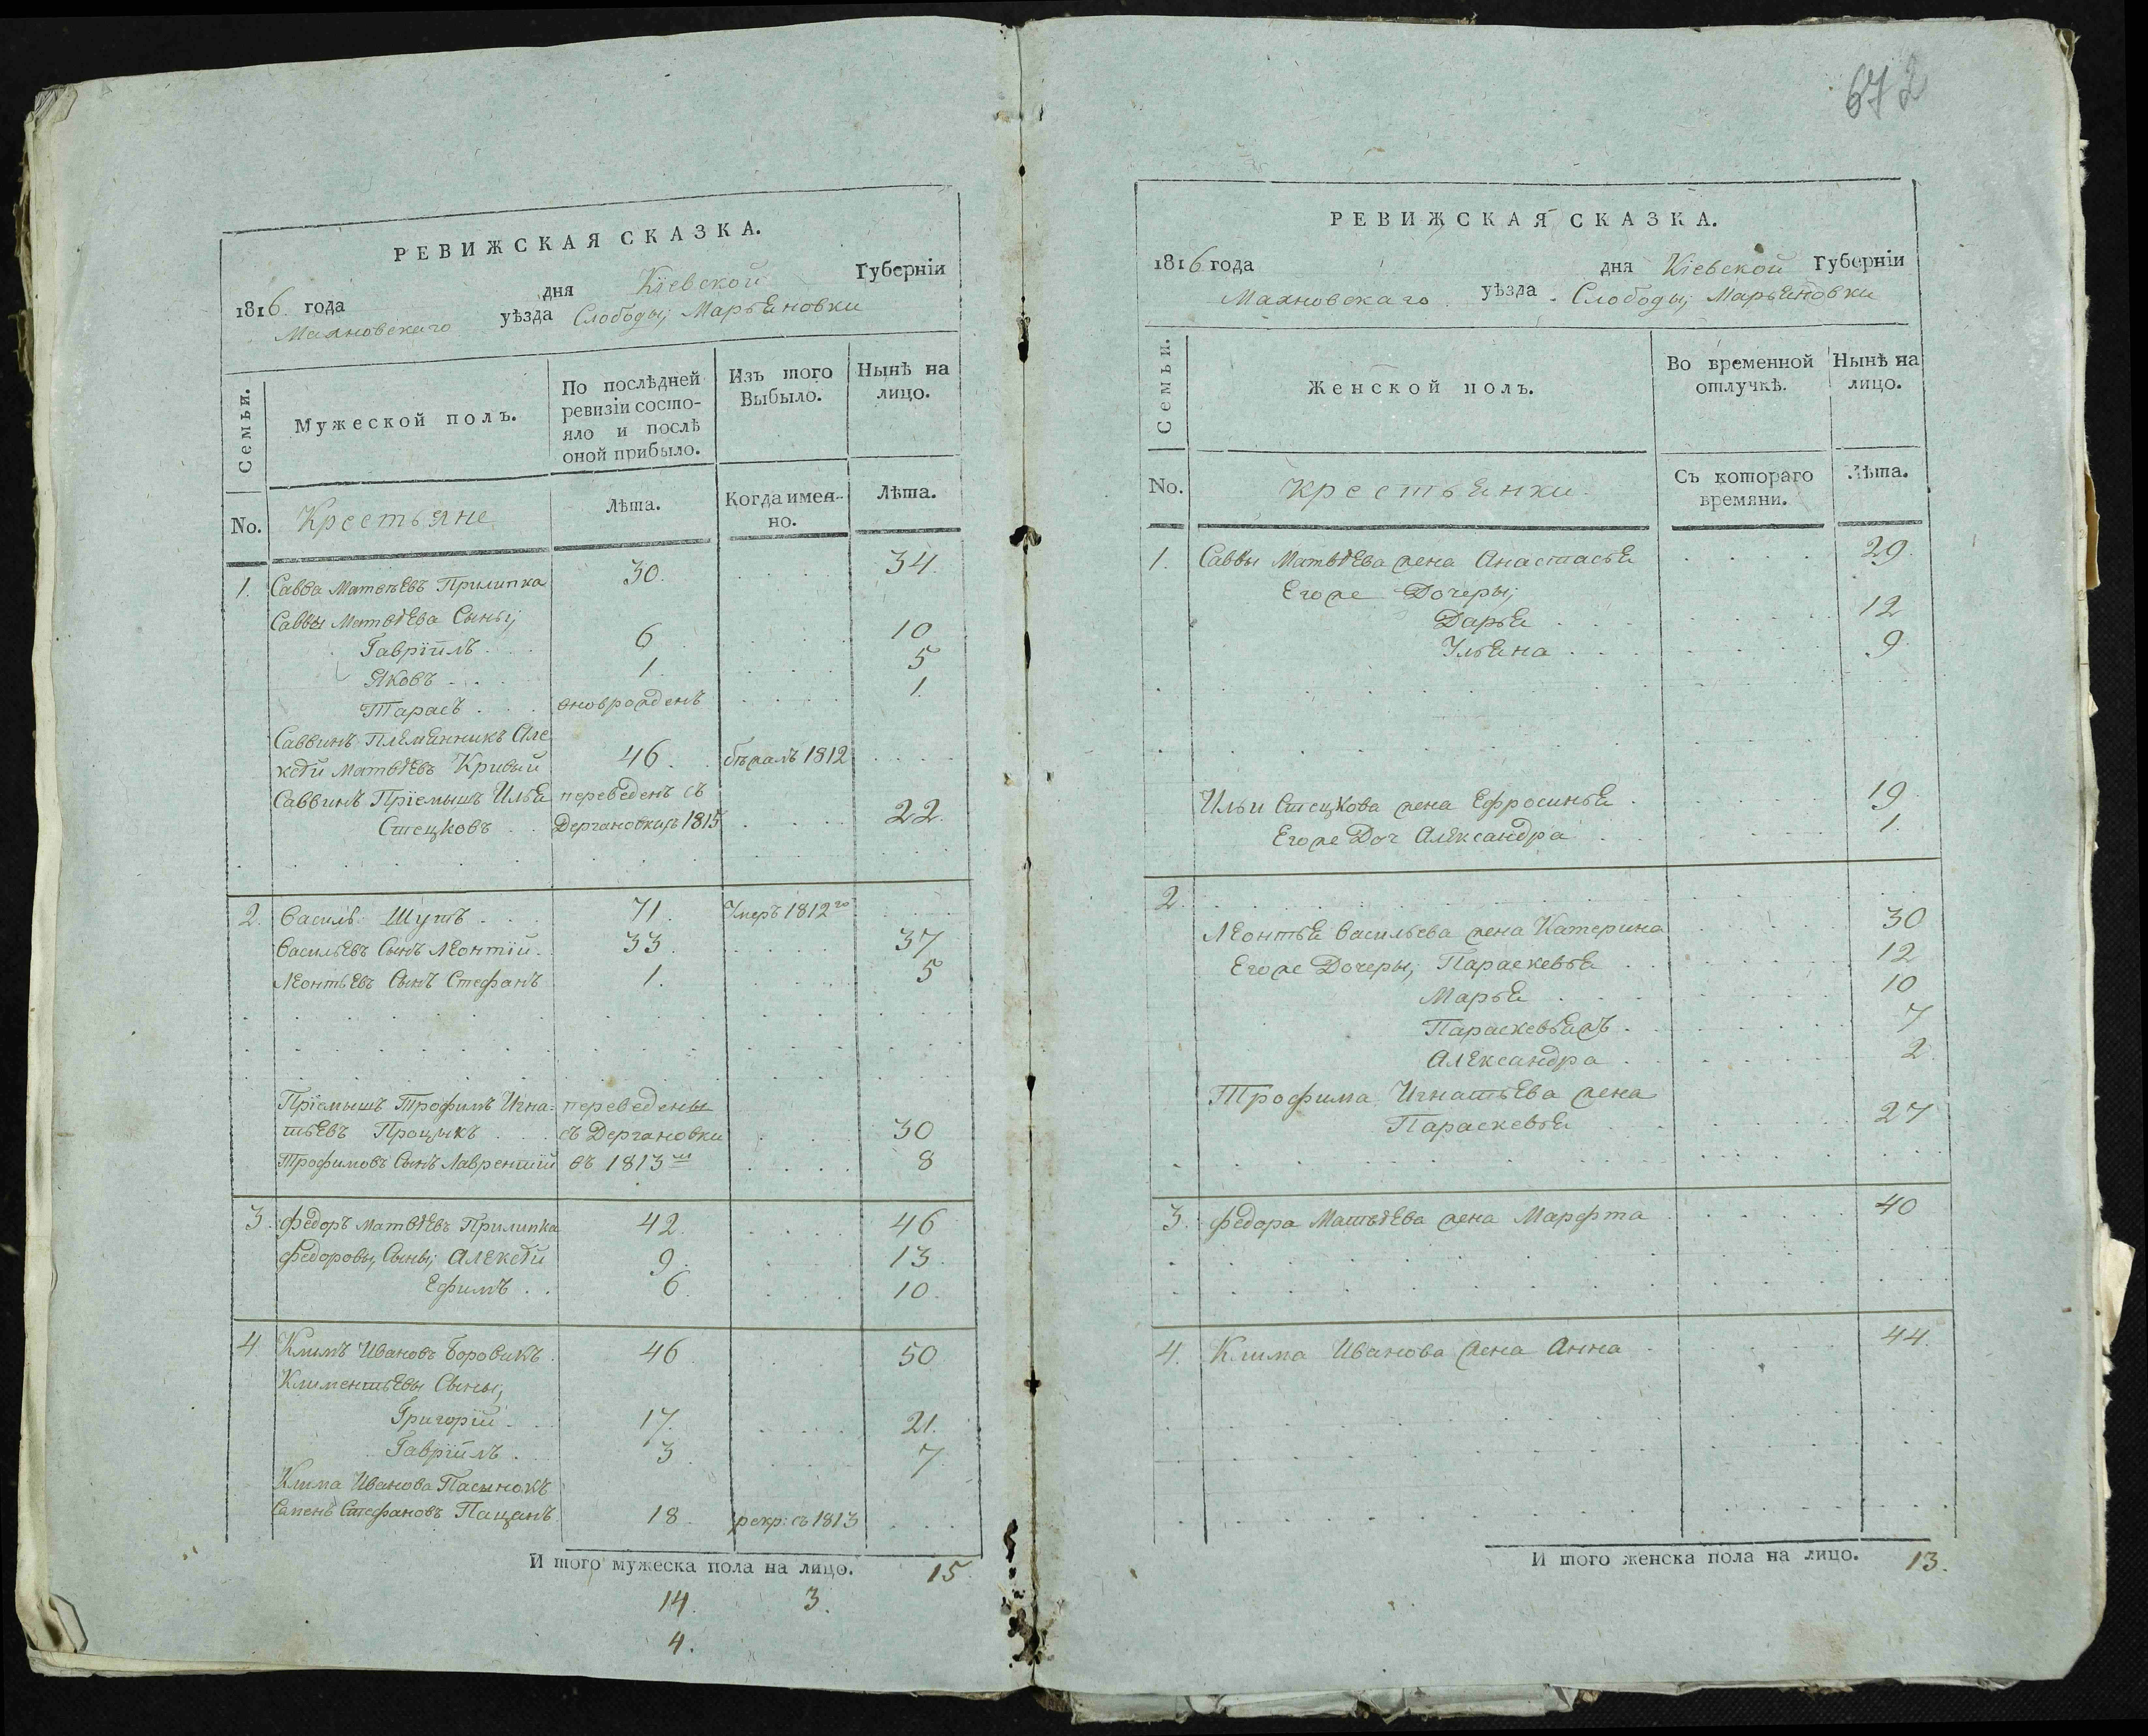 РЕВИЖСКАЯ СКАЗКА.
1816 года дня Кіевской Губерніи
Махновскаго уѣзда Слободы Марьяновки
Семьи.
Мужеской полъ.
По послѣдней ревизіи состо-
яло и послѣ
оной прибыло.
Изъ того Выбыло.
Нынѣ на лицо.
No. Крестьяне Лѣта. Когда имен-
но. Лѣта.
1. Савва Матвѣевъ Прилипка 30. 34.
Саввы Матвѣева Сыны;
Гавріилъ 6 10
Яковъ 1. 5
Тарасъ новорожденъ 1.
Саввинъ Племянникъ Але
ксѣй Матвѣевъ Кривый 46 бѣжалъ 1812
Саввинъ Пріемышъ Илья переведенъ съ
Стецковъ Дергановки въ 1815 22.
2. Василь Шутъ 71. Умеръ 1812го
Васильевъ Сынъ Леонтій 33 37
Леонтьевъ Сынъ Стефанъ 1. 5
Пріемышъ Трофимъ Игна- переведены
тьевъ Процыкъ съ Дергановки 30
Трофимовъ Сынъ Лаврентій въ 1813м 8
3. Федоръ Матвѣевъ Прилипка 42. 46
Федоровы Сыны; Алексѣй 9. 13.
Ефимъ 6. 10.
4 Климъ Ивановъ Боровикъ 46 50
Климентьевы Сыны;
Григорій 17. 21.
Гавріилъ 3 7
Клима Иванова Пасынокъ
Семенъ Стефановъ Пацанъ 18. рекр: въ 1813
И того мужеска пола на лицо. 15
14. 3.
4.
672
РЕВИЖСКАЯ СКАЗКА.
1816 года дня Кіевской Губерніи
Махновскаго уѣзда Слободы Марьяновки
Семьи.
Женской полъ.
Во временной отлучкѣ.
Нынѣ на лицо.
No. Крестьянки. Съ котораго
времяни. Лѣта.
1. Саввы Матвѣева жена Анастасья 29.
Его же Дочеры;
Дарья 12
Ульяна 9.
Ильи Стецкова жена Ефросинья 19
Его же Доч Александра 1.
2.
Леонтья Васильева жена Катерина 30
Его же Дочеры; Параскевья 12
Марья 10
Параскевья жъ 7
Александра 2.
Трофима Игнатьева жена
Параскевья 27
3. Федора Матвѣева жена Марфта 40
4. Клима Иванова жена Анна 44.
И того женска пола на лицо. 13.